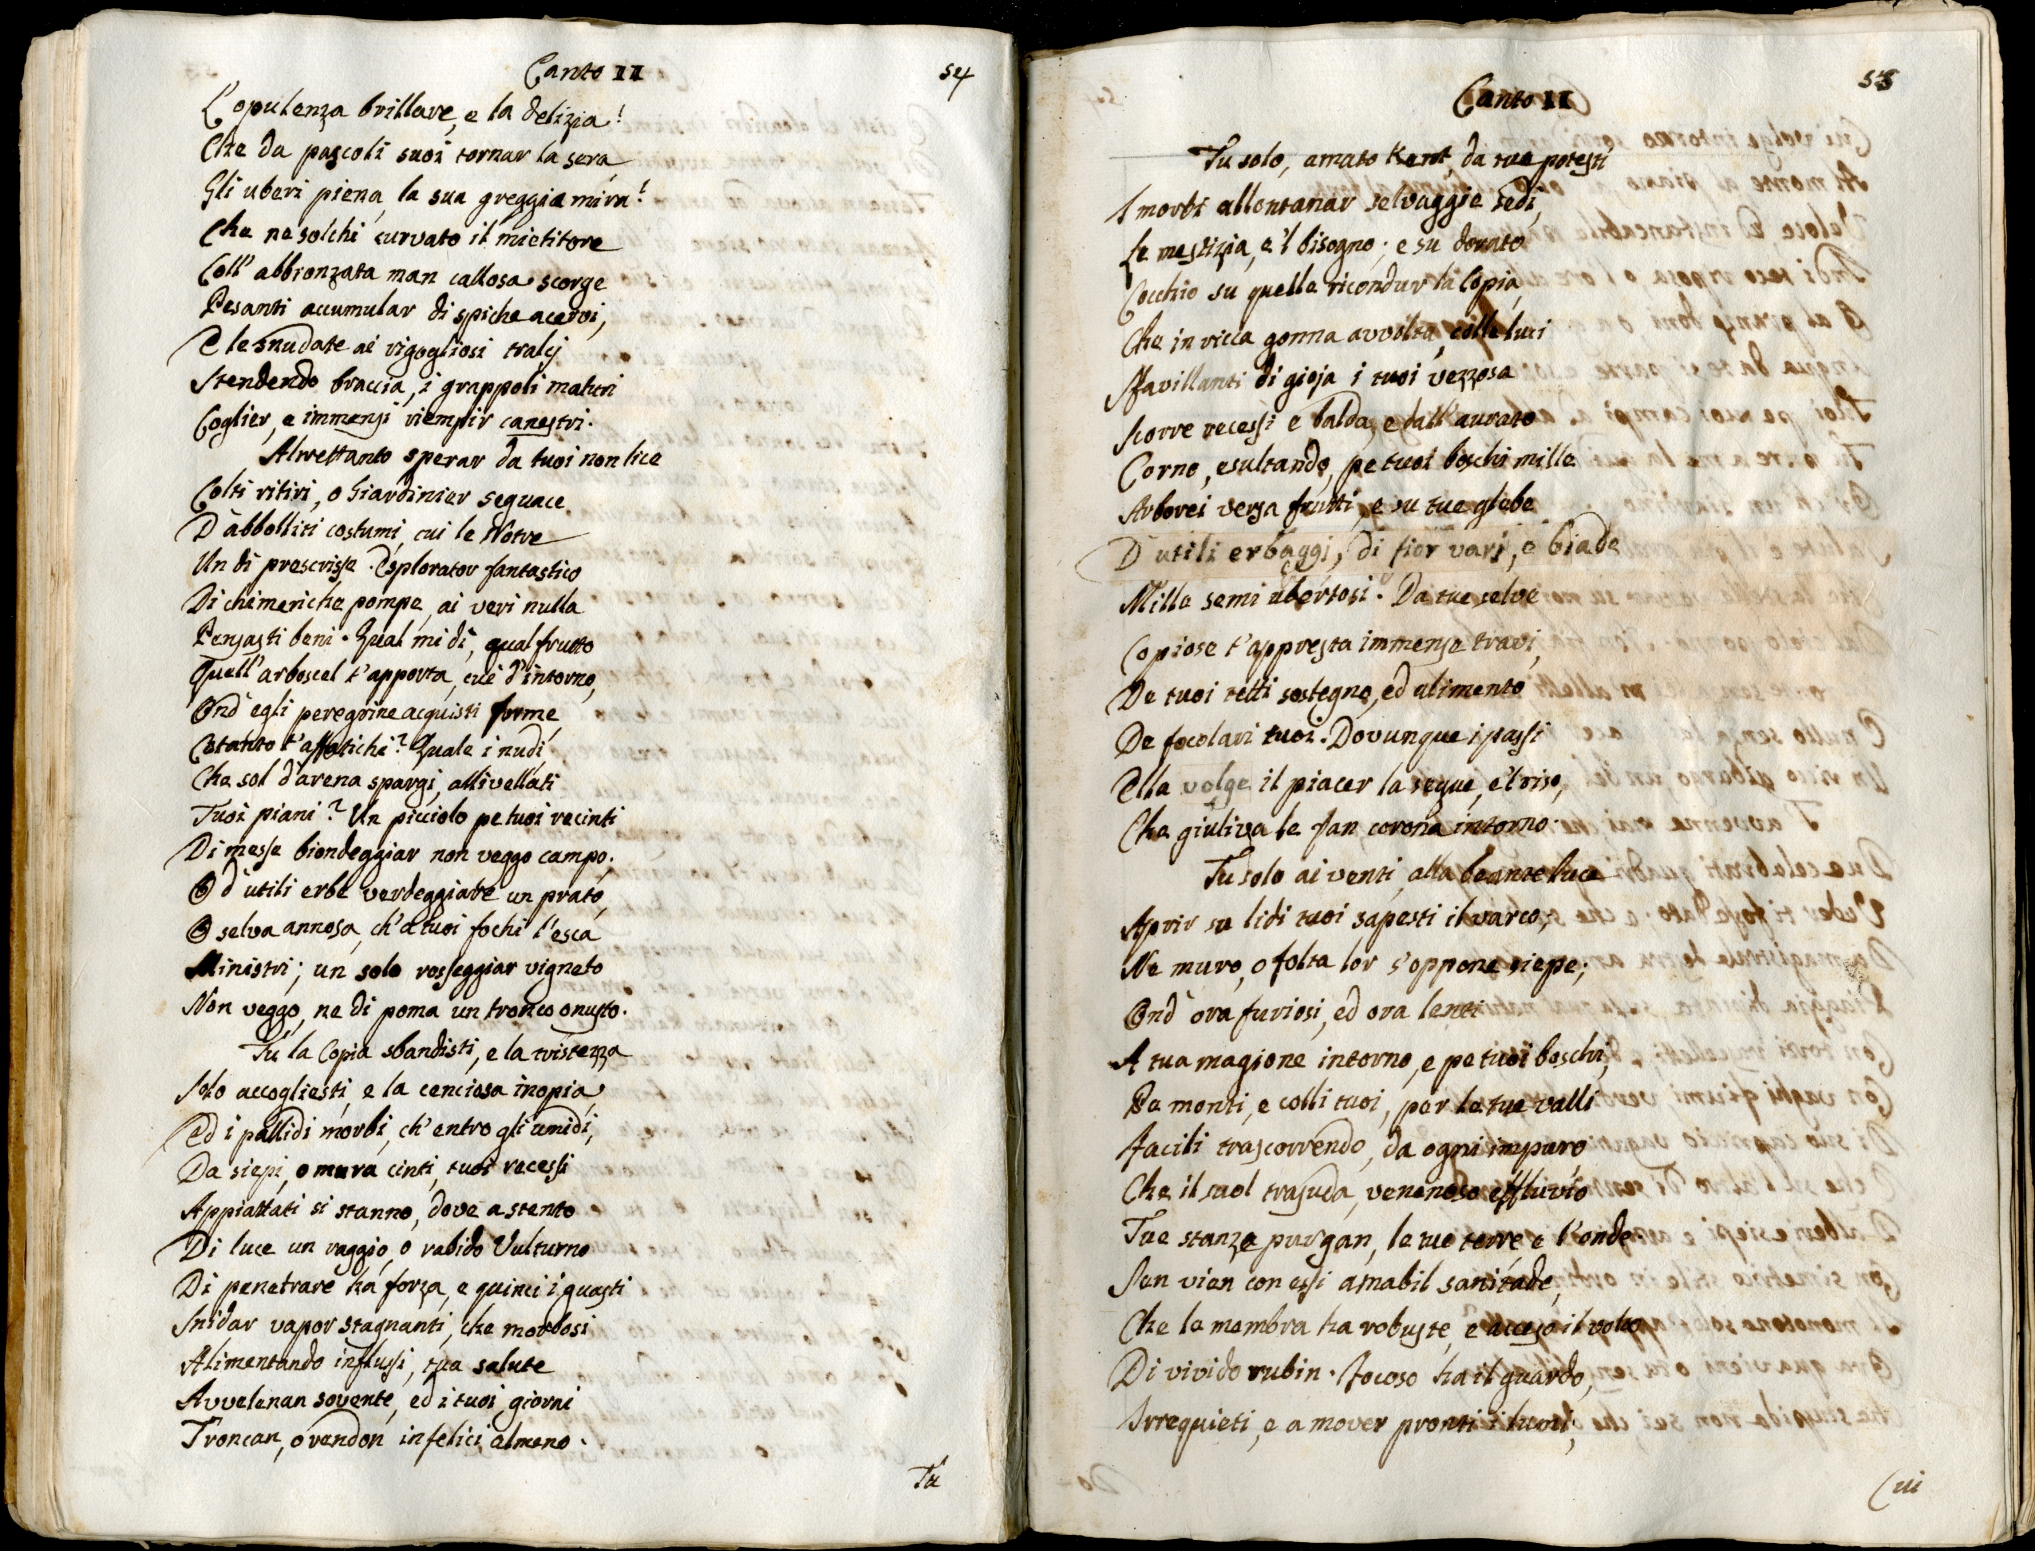 Canto II
54
L'opulenza brillare, e la delizia!
Che da pascoli suoi tornar la sera,
Gli uberi piena, la sua greggia mira!
Che ne solchi curvato il mietitore
Coll' abbronzata man callosa scorge
Pesanti accumular di spiche acervi,
E le snudate ai rigogliosi tralcj
Stendendo braccia, i grappoli maturi
Coglier, e immensi riempir canestri.
Alrettanto sperar da tuoi non lice
Colti ritiri, o Giardinier seguace
D'abbolliti costumi, cui le Notre
Un dì prescrisse. Esplorator fantastico
Di chimeriche pompe, ai veri nulla
Pensasti beni. Qual mi dì, qual frutto
Quell'arboscel t'apporta, cui d'intorno,
Ond' egli peregrine acquisti forme,
Cotanto t'affatichi? Quale i nudi,
Che sol d'arena spargi, allivellati
Tuoi piani? Un picciolo pe tuoi recinti
Di messe biondeggiar non veggo campo,
O d'utili erbe verdeggiare un prato,
O selva annosa, ch'a tuoi fochi l'esca
Ministri; un solo rosseggiar vigneto
Non veggo, ne di poma un tronco onusto.
Tu la Copia sbandisti, e la tristezza
Solo accogliesti, e la cenciosa inopia,
Ed i pallidi morbi, ch'entro gli umidi,
Da siepi, o mura cinti, tuoi recessi
Appiattati si stanno, dove a stento
Di luce un raggio, o rabido Vulturno
Di penetrare ha forza, e quinci i guasti
Snidar vapor stagnanti, che morbosi
Alimentando influssi, tua salute
Avvelenan sovente, ed i tuoi giorni
Troncan, o rendon infelici almeno.
Tu
Canto II
55
Tu solo, amato Kent, da tue potesti
I morbi allontanar selvaggie sedi,
La mestizia, e'l bisogno; e su dorato
Cocchio su quelle ricondur la Copia,
Che in ricca gonna avvolta, colle luci
Sfavillanti di gioja i tuoi vezzosa
Scorre recessi e balda, e dall'aurato
Corno, esultando, pe tuoi boschi mille
Arborei versa frutti, e su tue glebe
D'utili erbaggi, di fior varj, e biade
Mille semi ubertosi. Da tue selve
Copiose t'appresta immense travi,
De tuoi tetti sostegno, ed alimento
De focolari tuoi. Dovunque i passi
Ella volge il piacer la segue, e'l riso,
Che giuliva le fan corona intorno.
Tu solo ai venti, alla beante luce
Aprir su lidi tuoi sapesti il varco,
Ne muro, o folta lor s'oppone siepe;
Ond' ora furiosi, ed ora lenti
A tua magione intorno, e pe tuoi boschi,
Pe monti, e colli tuoi, per le tue valli
Facili trascorrendo, da ogni impuro
Che il suol trasuda, venenoso effluvio
Tue stanze purgan, le tue terre, e l'onde.
Sen vien con essi amabil sanitade,
Che le membra ha robuste, e acceso il volto
Di vivido rubin. Focoso ha il guardo,
Irrequieti, e a mover pronti i lumi,
Cui